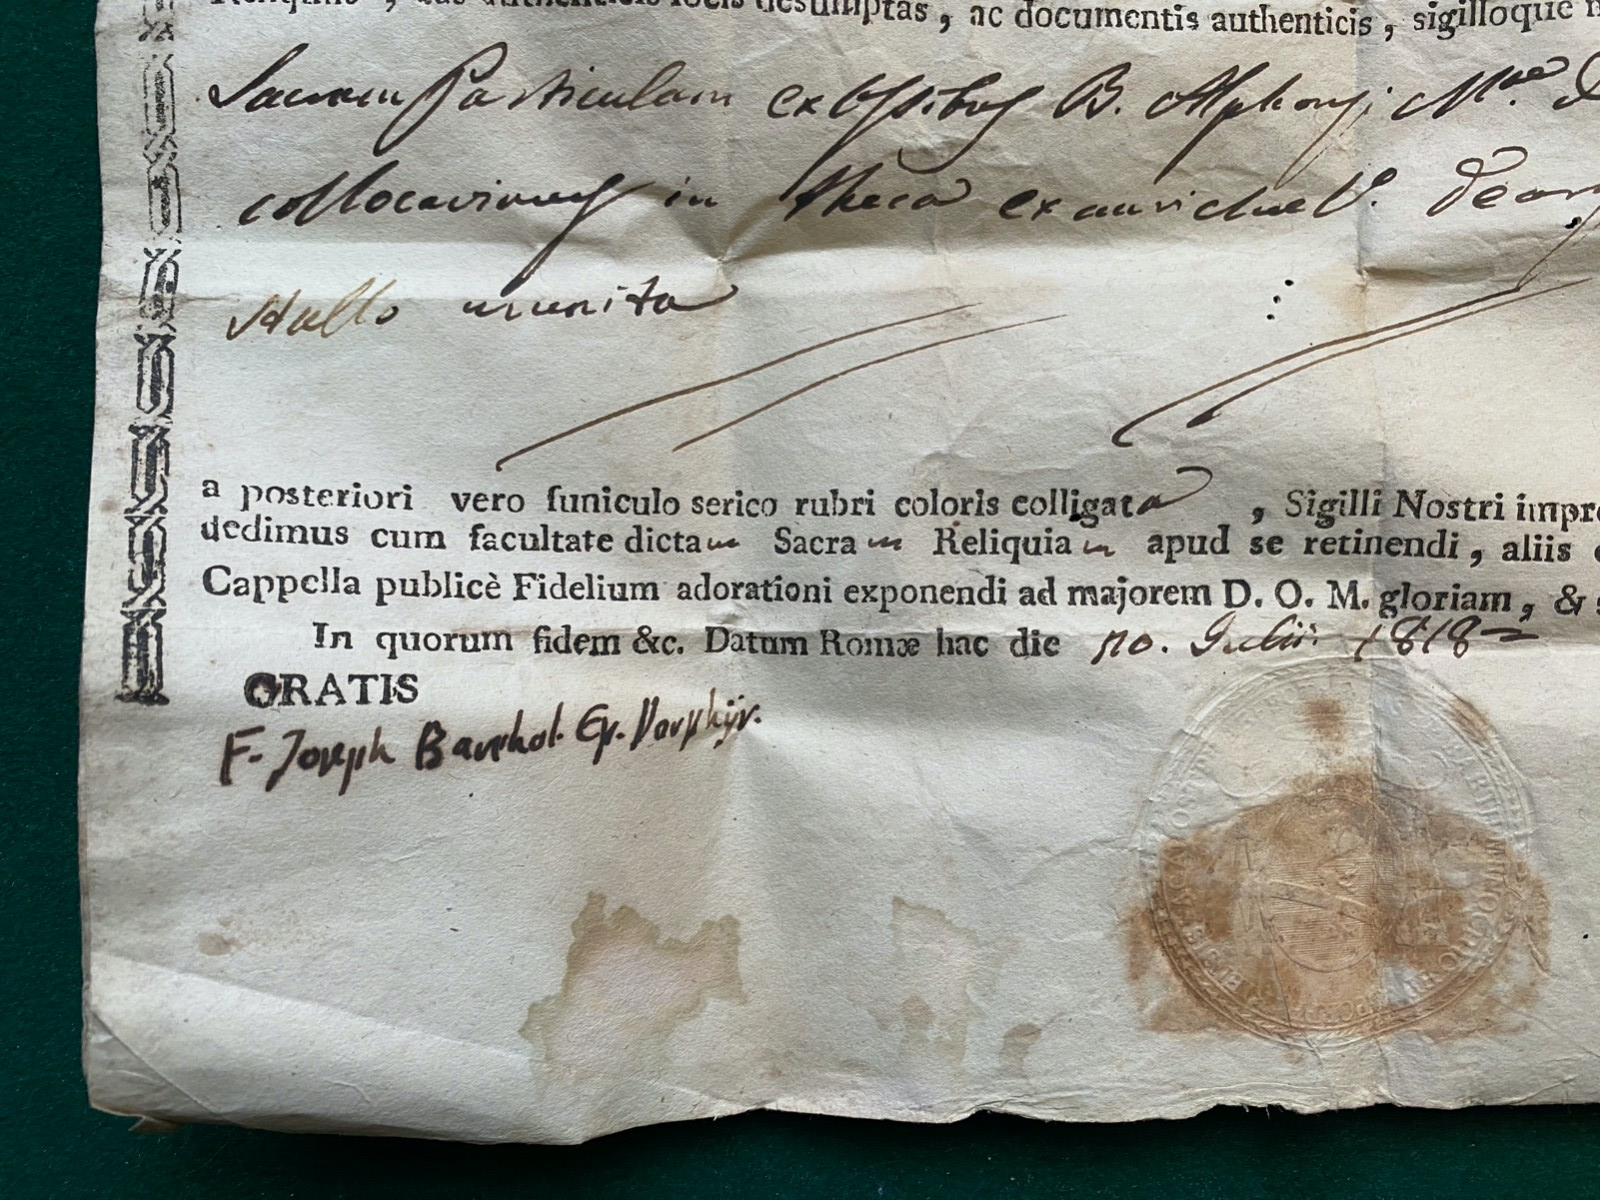 Reliquiis, eas authenticis locis desumptas, ac documentis authenticis, sigilloque
Sacram Particulam ex Ossibus B. Alphonsi Mae
collocavimus in theca ex aurichal.
stallo munita
a posteriori vero funiculo serico rubri coloris colligata, Sigilli Nostri impre
dedimus cum facultate dictam Sacram Reliquiam apud se retinendi, aliis
Cappella publicè Fidelium adorationi exponendi ad majorem D. O. M. gloriam, &
In quorum fidem &c. Datum Romæ hac die 10. Julii 1818
GRATIS
F. Joseph Barthol. Ep. Porphijr.